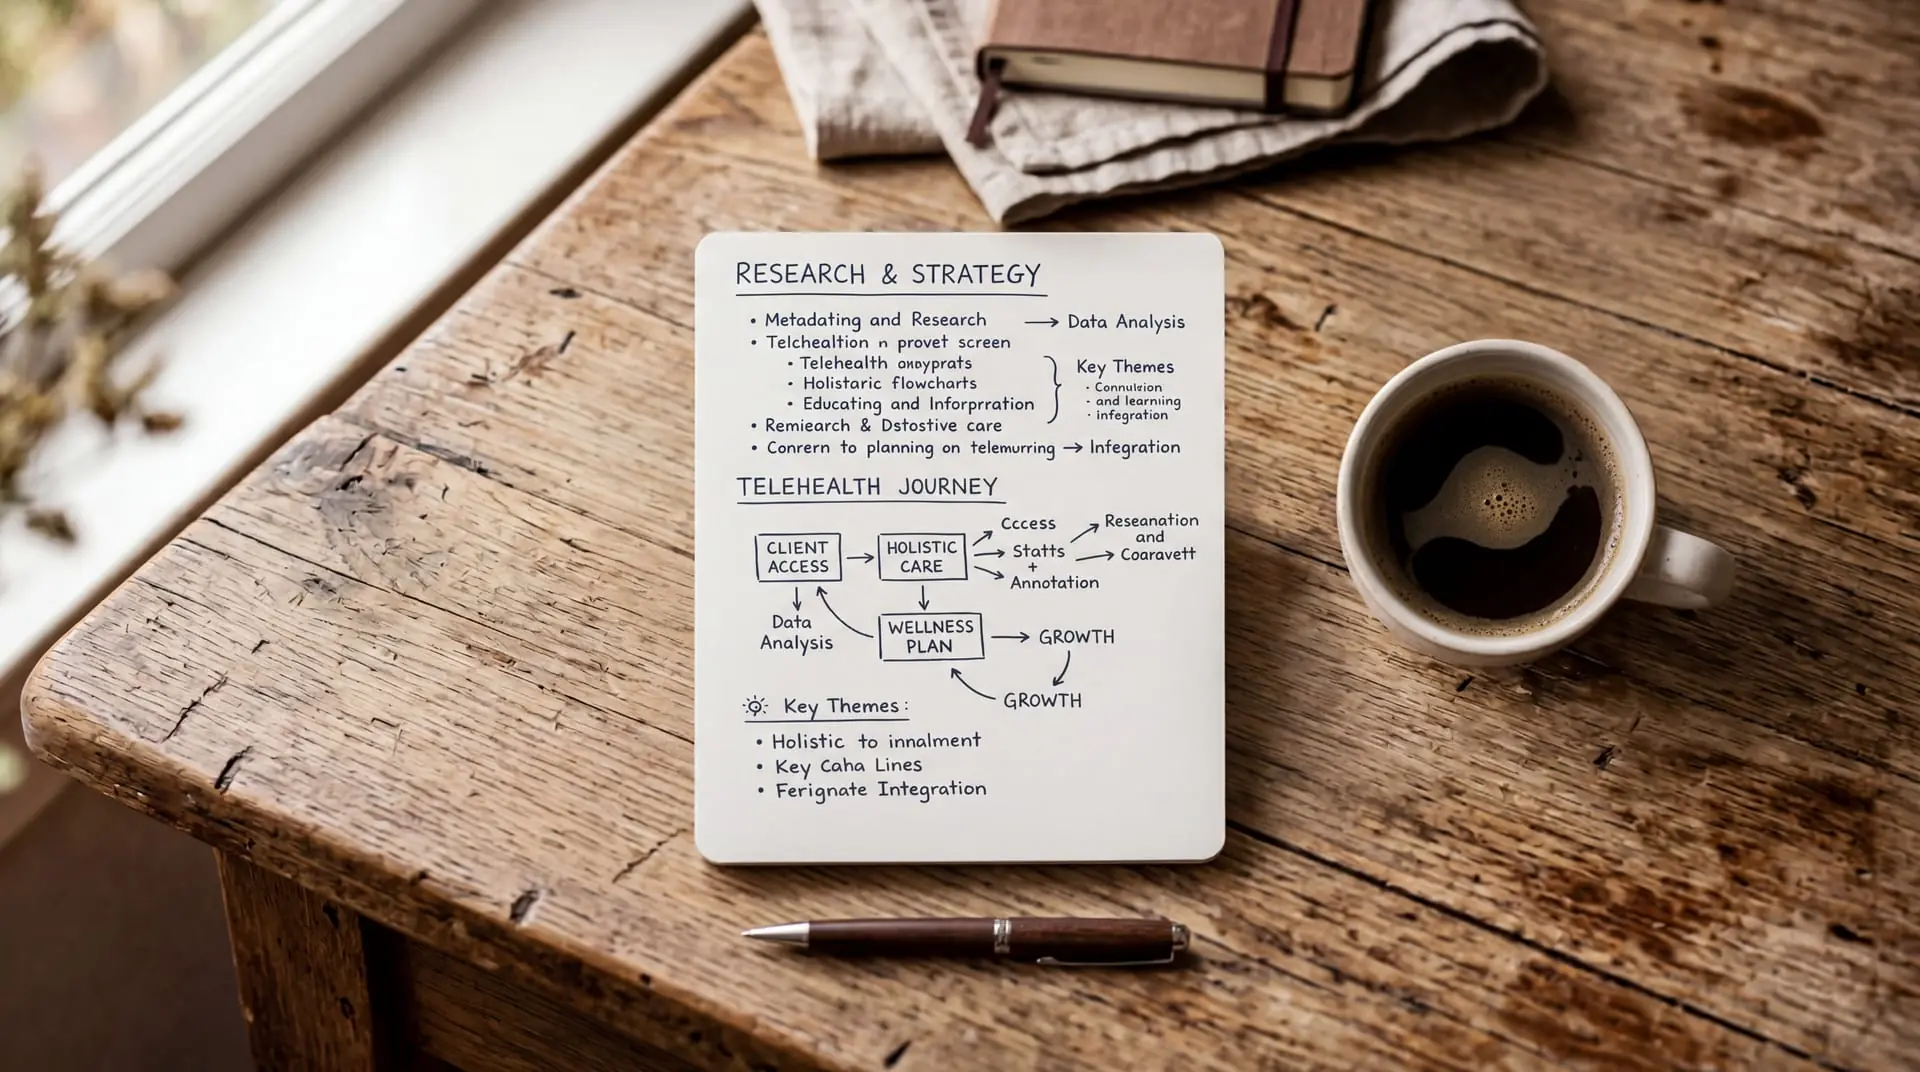 RESEARCH & STRATEGY
• Metadating and Research → Data Analysis
• Telchealtion n provet screen
• Telehealth anyyprats
• Holistaric flowcharts
• Educating and Inforprration
Key Themes
• and learning
• integration
• Remiearch & Dstostive care
• Conrern to planning on telemurring → Integration
TELEHEALTH JOURNEY
CLIENT ACCESS
HOLISTIC CARE
Cccess
Statts
+
Annotation
Reseanation
and
Coaravett
Data
Analysis
WELLNESS
PLAN
GROWTH
GROWTH
Key Themes:
• Holistic to innalment
• Key Caha Lines
• Ferignate Integration